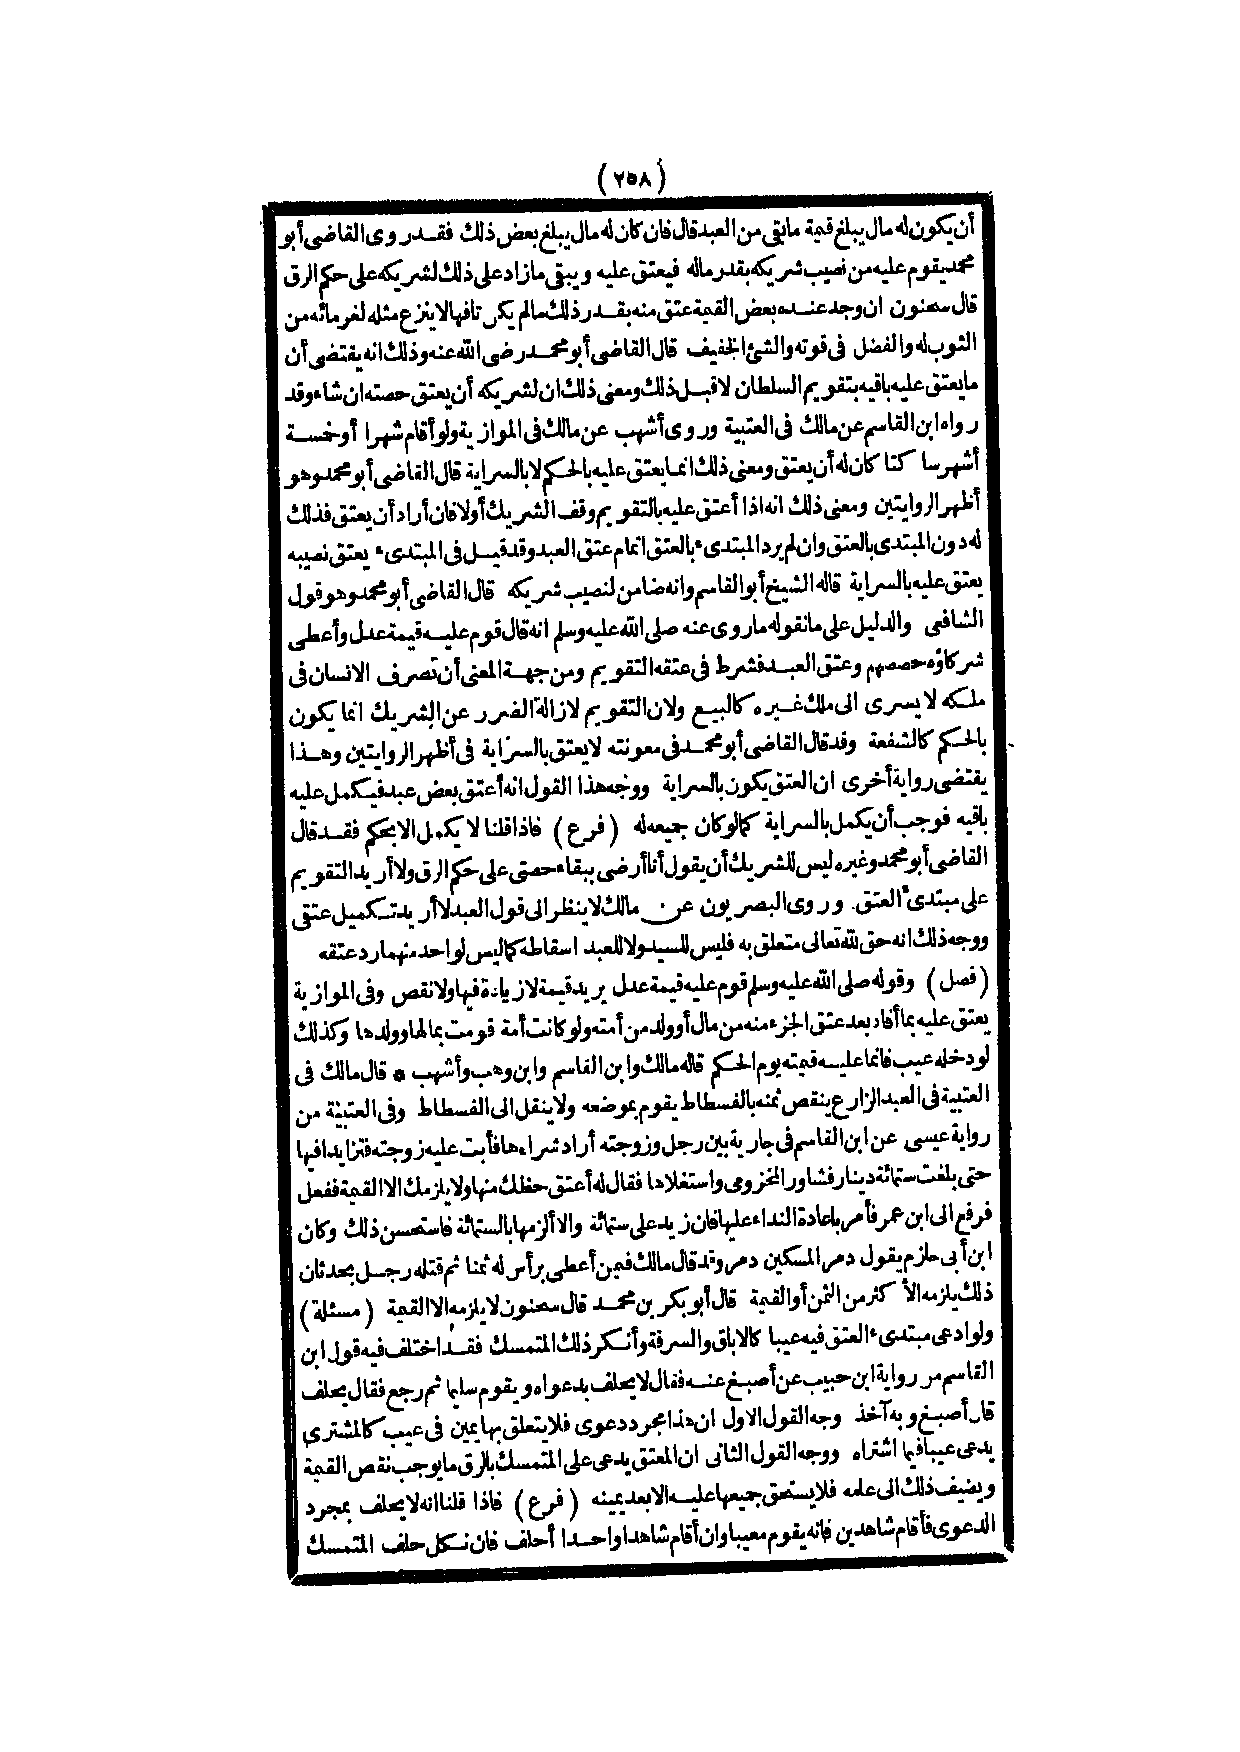 (٢٥٨)
أن يكون له مال يبلغ قيمة ما بقي من العبد قال فان كان له مال يبلغ بعض ذلك فقد روى القاضي أبو
محمد يقوم عليه من نصيب شريكه بقدر ماله فيعتق عليه ويبقى ما زاد على ذلك لشريكه على حكم الرق
قال سحنون ان وجد عنده بعض القيمة عتق منه بقدر ذلك ما لم يكن تافها لا ينزع مثله لغرمائه من
الثوب له والفضل فى قوته والشئ الخفيف قال القاضى أبو محمد رضى الله عنه وذلك انه يقتضى أن
ما يعتق عليه باقيه بتقويم السلطان لا قبل ذلك ومعنى ذلك ان لشريكه أن يعتق حصته ان شاء وقد
رواه ابن القاسم عن مالك فى العتبية وروى أشهب عن مالك فى الموازية ولو أقام شهرا أو خمسة
أشهر ساكتا كان له أن يعتق ومعنى ذلك انما يعتق عليه بالحكم لا بالسراية قال القاضى أبو محمد وهو
أظهر الروايتين ومعنى ذلك انه اذا أعتق عليه بالتقويم وقف الشريك أولا فان أراد أن يعتق فذلك
له دون المبتدى بالعتق وان لم يرد المبتدىء بالعتق اتمام عتق العبد وقد قيل فى المبتدىء يعتق نصيبه
يعتق عليه بالسراية قاله الشيخ أبو القاسم وانه ضامن لنصيب شريكه قال القاضى أبو محمد وهو قول
الشافعى والدليل على ما نقوله ما روى عنه صلى الله عليه وسلم انه قال قوم عليه قيمة عدل وأعطى
شركاؤه حصصهم وعتق العبد فشرط فى عتقه التقويم ومن جهة المعنى أن تصرف الانسان فى
ملكه لا يسرى الى ملك غيره كالبيع ولان التقويم لازالة الضرر عن الشريك انما يكون
بالحكم كالشفعة وقد قال القاضى أبو محمد فى معونته لا يعتق بالسراية فى أظهر الروايتين وهذا
يقتضى رواية أخرى ان العتق يكون بالسراية ووجه هذا القول انه أعتق بعض عبد فيكمل عليه
باقيه فوجب أن يكمل بالسراية كما لو كان جميعه له (فرع) فاذا قلنا لا يكمل الا بحكم فقد قال
القاضى أبو محمد وغيره ليس للشريك أن يقول أنا أرضى ببقاء حصتى على حكم الرق ولا أريد التقويم
على مبتدىء العتق. وروى البصريون عن مالك لا ينظر الى قول العبد لا أريد تكميل عتقى
ووجه ذلك انه حق لله تعالى متعلق به فليس للسيد ولا للعبد اسقاطه كما ليس لواحد منهما رد عتقه
(فصل) وقوله صلى الله عليه وسلم قوم عليه قيمة عدل يريد قيمة لا زيادة فيها ولا نقص وفى الموازية
يعتق عليه بما أفاد بعد عتق الجزء منه من مال أو ولد من أمته ولو كانت أمة قومت بمالها وولدها وكذلك
لو دخله عيب فانما عليه قيمته يوم الحكم قاله مالك وابن القاسم وابن وهب وأشهب * قال مالك فى
العتبية فى العبد الزارع ينقص ثمنه بالفسطاط يقوم بموضعه ولا ينقل الى الفسطاط وفى العتبية من
رواية عيسى عن ابن القاسم فى جارية بين رجل وزوجته أراد شراءها فأبت عليه زوجته فتزايدا فيها
حتى بلغت ستمائة دينار فشاور المخزومى واستغلاها فقال له أعتق حظك منها ولا يلزمك الا القيمة ففعل
فرفع الى ابن عمر فأمر باعادة النداء عليها فان زيد على ستمائة والا ألزمها بالستمائة فاستحسن ذلك وكان
ابن أبى حازم يقول دمر المسكين دمر وقد قال مالك فيمن أعطى برأس له ثمنا ثم قتله رجل بحدثان
ذلك يلزمه الأكثر من الثمن أو القيمة قال أبو بكر بن محمد قال سحنون لا يلزمه الا القيمة (مسئلة)
ولو ادعى مبتدىء العتق فيه عيبا كالاباق والسرقة وأنكر ذلك المتمسك فقد اختلف فيه قول ابن
القاسم من رواية ابن حبيب عن أصبغ عنه فقال لا يحلف بدعواه ويقوم سليما ثم رجع فقال يحلف
قال أصبغ وبه آخذ وجه القول الاول ان هذا مجرد دعوى فلا يتعلق بها يمين فى عيب كالمشترى
يدعى عيبا فيما اشتراه ووجه القول الثانى ان المعتق يدعى على المتمسك بالرق ما يوجب نقص القيمة
ويضيف ذلك الى علمه فلا يستحق جميعها عليه الا بعد يمينه (فرع) فاذا قلنا انه لا يحلف بمجرد
الدعوى فأقام شاهدين فانه يقوم معيبا وان أقام شاهدا واحدا أحلف فان نكل حلف المتمسك